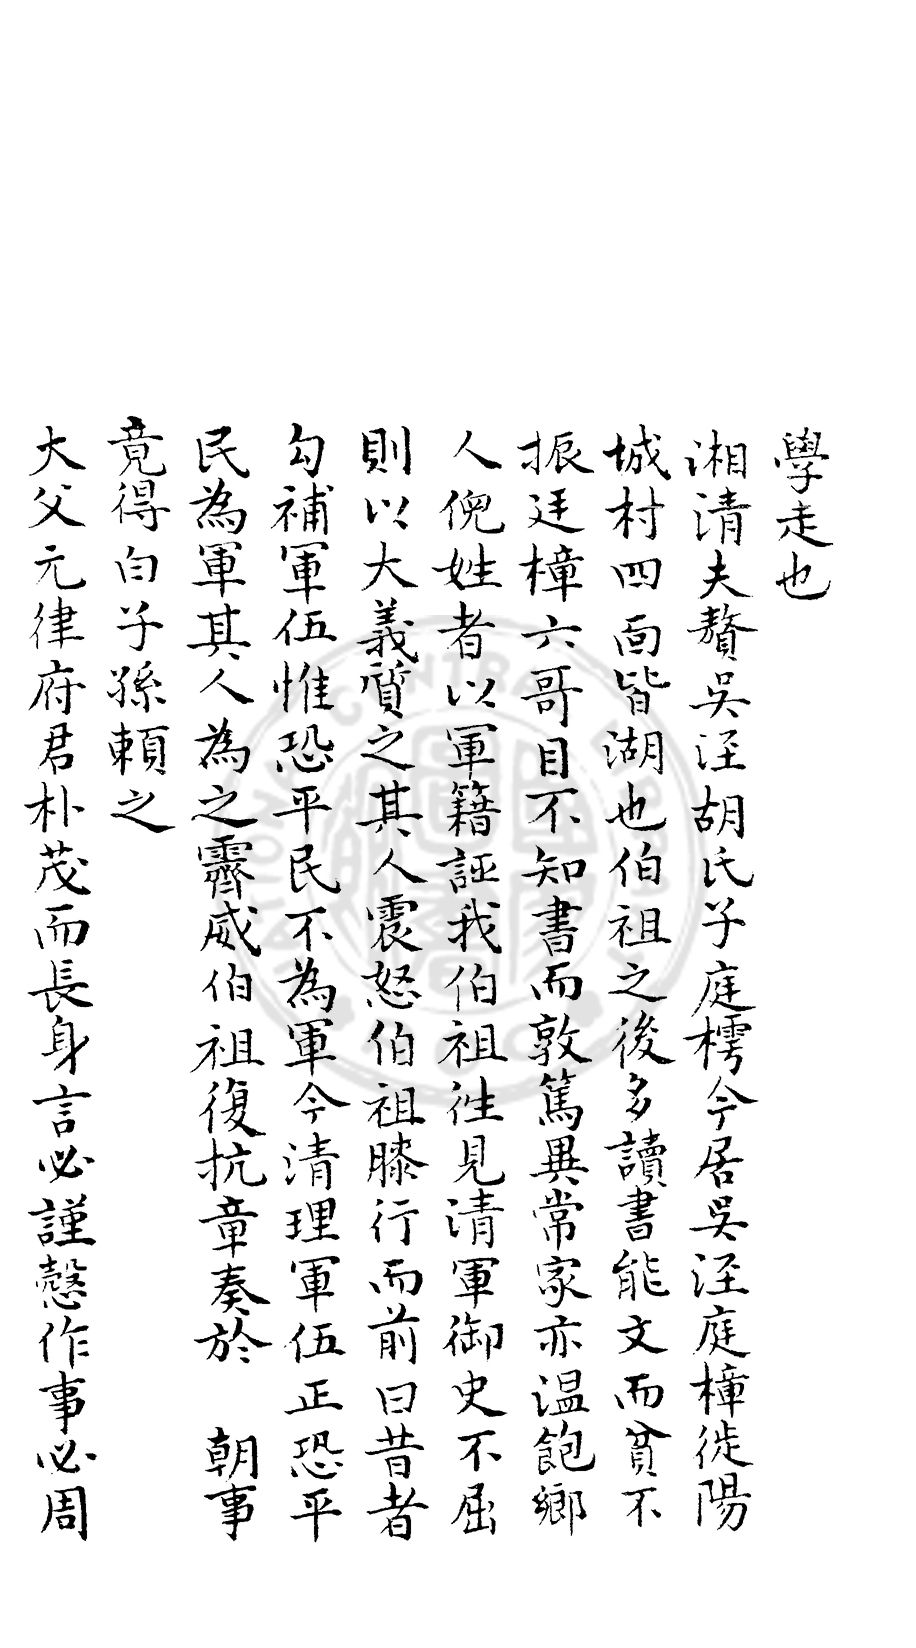 學走也
湘清夫贅吳涇胡氏子庭樗今居吳涇庭樟徙陽
城村四面皆湖也伯祖之後多讀書能文而貧不
振廷樟六哥目不知書而敦篤異常家亦温飽鄉
人倪姓者以軍籍誣我伯祖徃見清軍御史不屈
則以大義質之其人震怒伯祖膝行而前曰昔者
勾補軍伍惟恐平民不為軍今清理軍伍正恐平
民為軍其人為之霽威伯祖復抗章奏於 朝事
竟得白子孫賴之
大父元律府君朴茂而長身言必謹慤作事必周